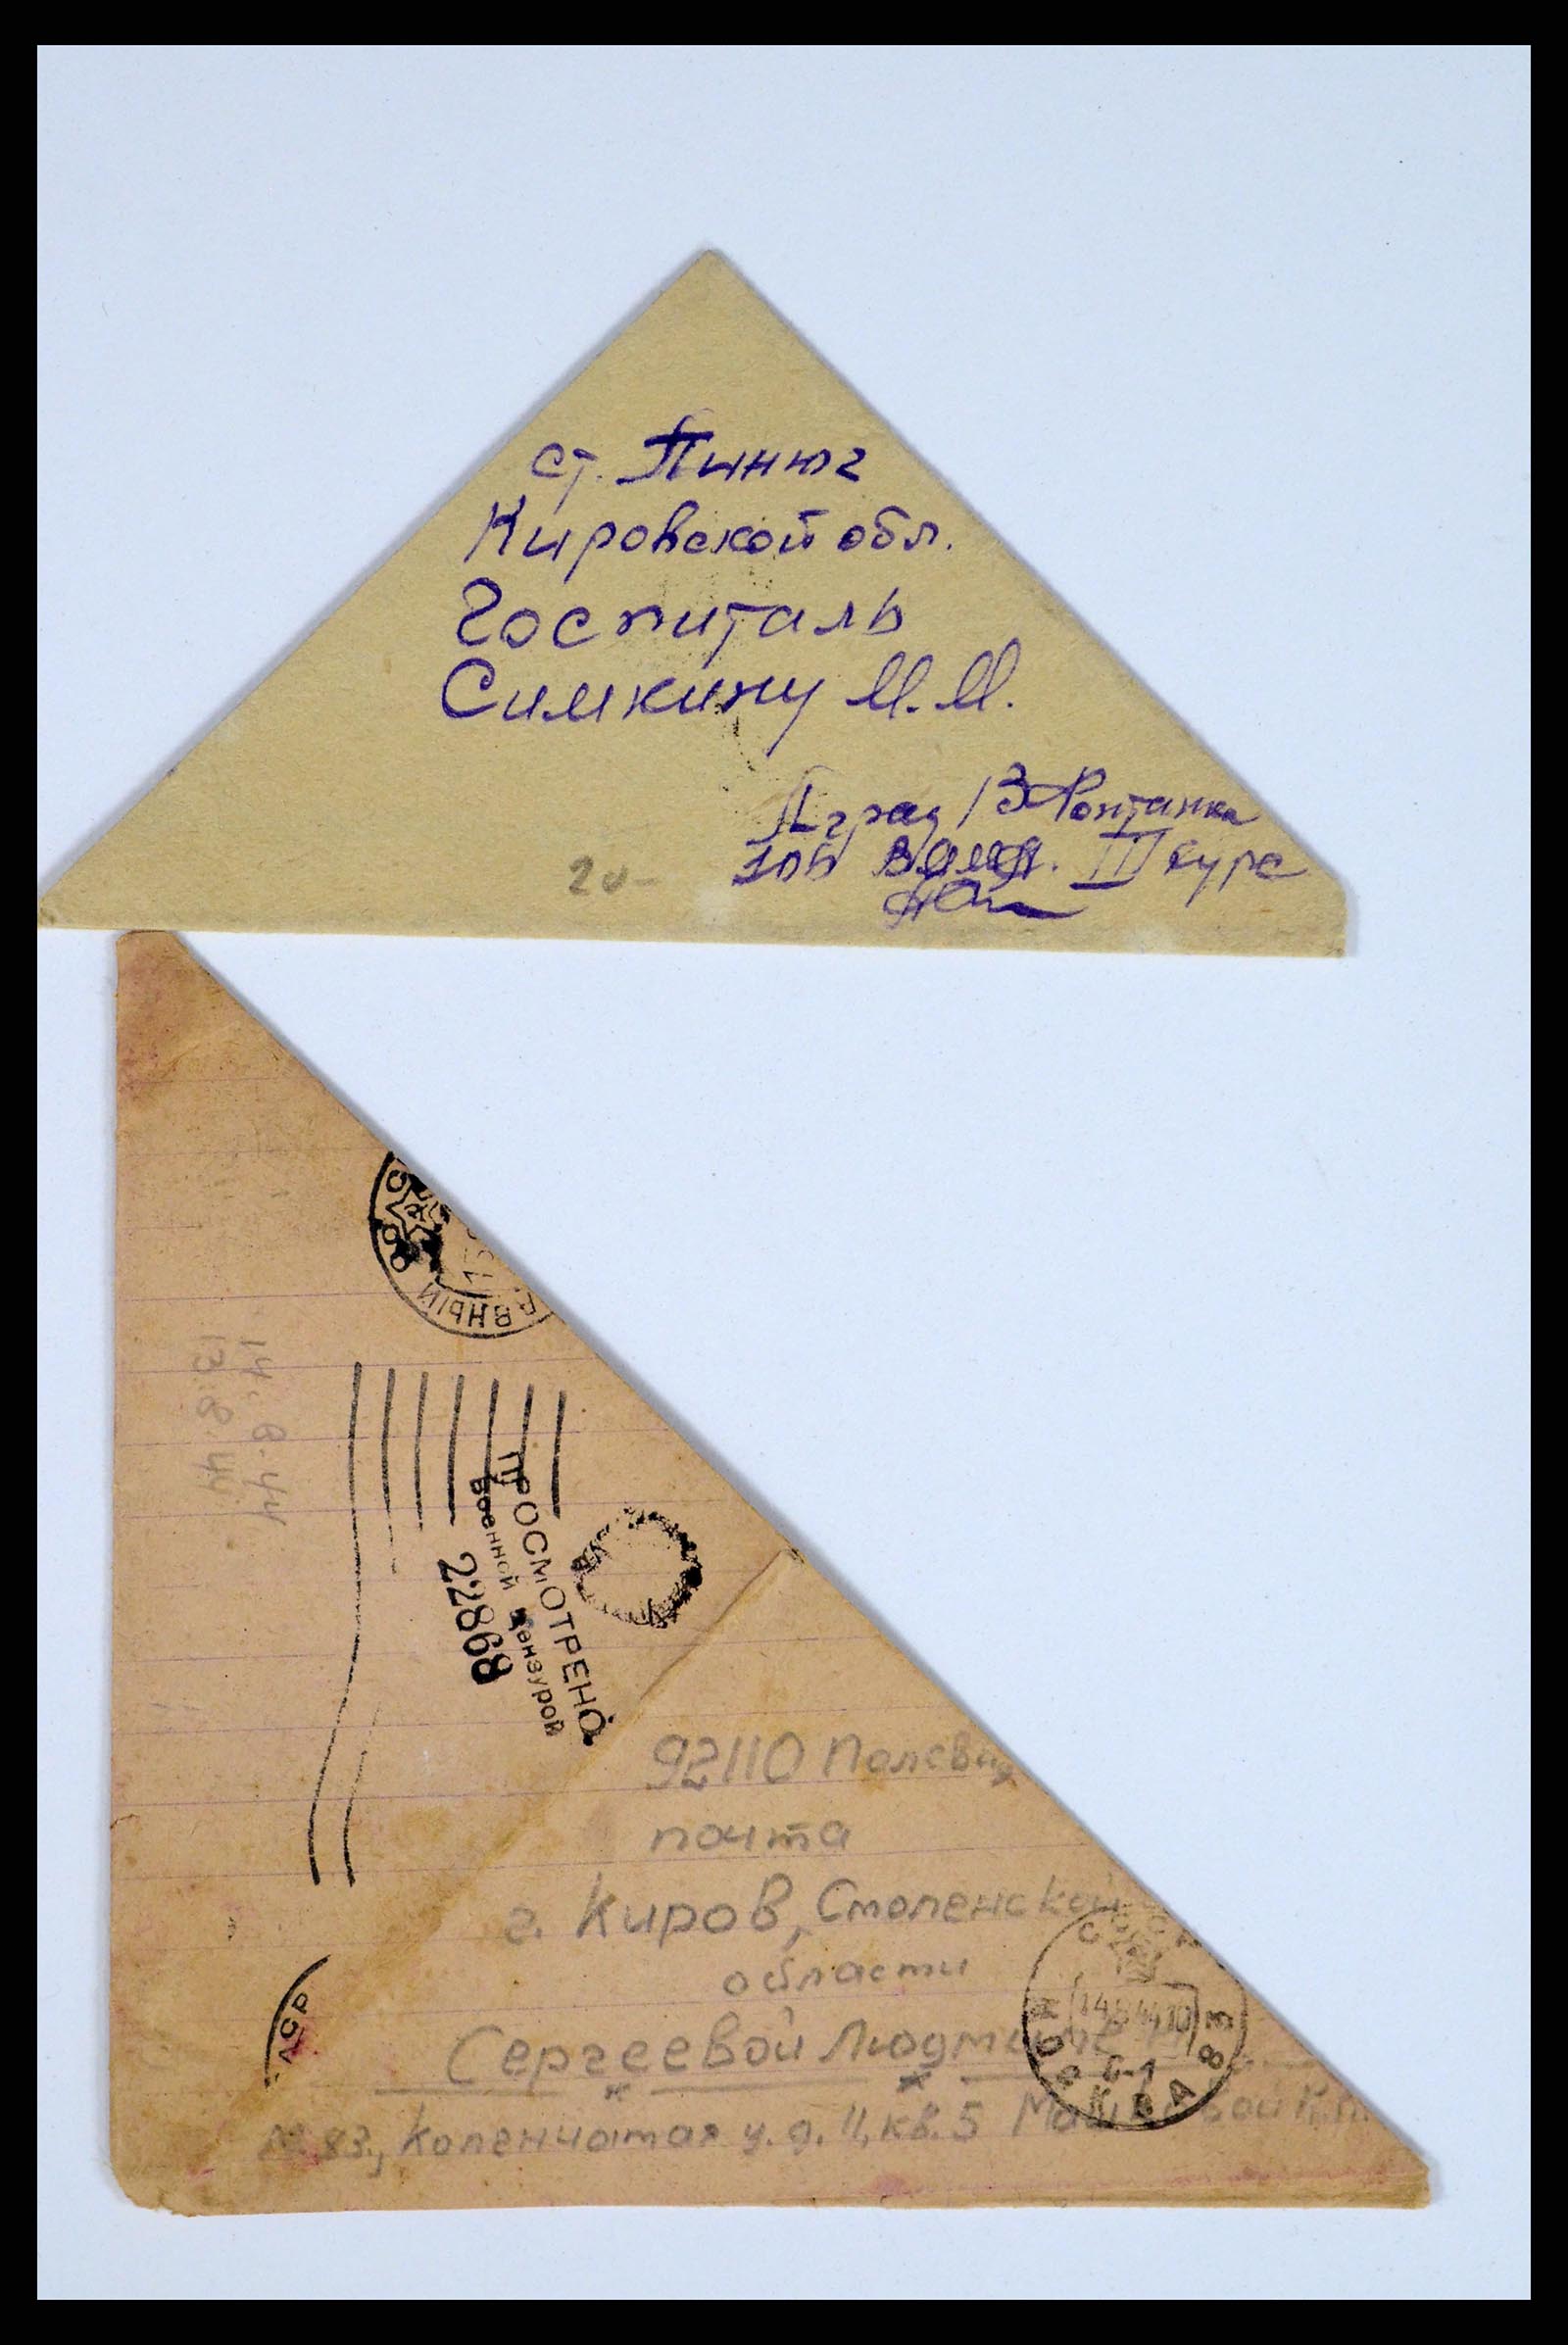 ст. Пинюг
Кировской обл.
Госпиталь
Симкину М.М.
Лград 13 Фонтанка
106 II курс
20-
ВНЫЙ
14.8.44
13.8.44
ПРОСМОТРЕНО
Военной Цензурой
22868
92110 Полевая
почта
г. Киров, Смоленской
области
Сергеевой Людмиле
СССР
МОСКВА
№ 83, Коленчатая у. д. 11, кв. 5